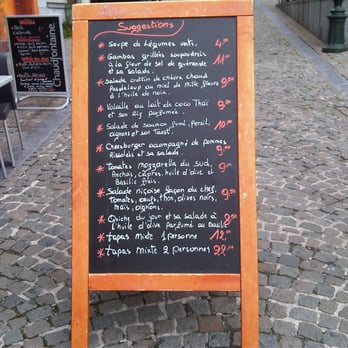 Suggestions
* Soupe de Légumes vari. 4.00
* Gambas grillées saupoudrées
à la fleur de sel de guérande
et sa salade. 11.00
* Salade crottin de chèvre chaud
au miel de mille fleurs
à l'huile de noix. 9.50
* Volaille au lait de coco Thaï
et son Riz parfumée. 9.00
* Salade de saumon fumé, persil,
oignons et son Toast. 10.00
* Cheesburger acompagné de pommes
Rissolées et sa salade. 9.00
* Tomates mozzarella du sud,
Anchois, câpres, huile d'olive et
Basilic frais. 9.00
* Salade niçoise façon du chef,
Tomates, oeufs, thon, olives noirs,
maïs, oignons. 9.50
* Quiche du jour et sa salade à
l'huile d'olive parfumé au Basilic 8.50
* tapas mixte 1 personne 12.00
* tapas mixte 2 personnes 22.00
Chaudfontaine